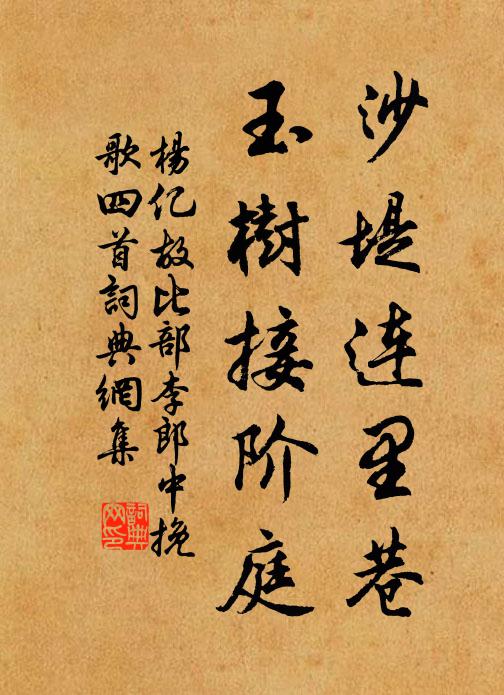 沙堤连里巷
玉樹接阶庭
楊亿故比部李郎中挽
歌四首詞典網集
詞典
网印